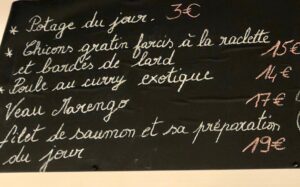 * Potage du jour. 3€
* Chicons gratin farcis à la raclette
et bardés de lard 15€
* Poule au curry exotique 14€
Veau Marengo 17€
filet de saumon et sa préparation
du jour 19€